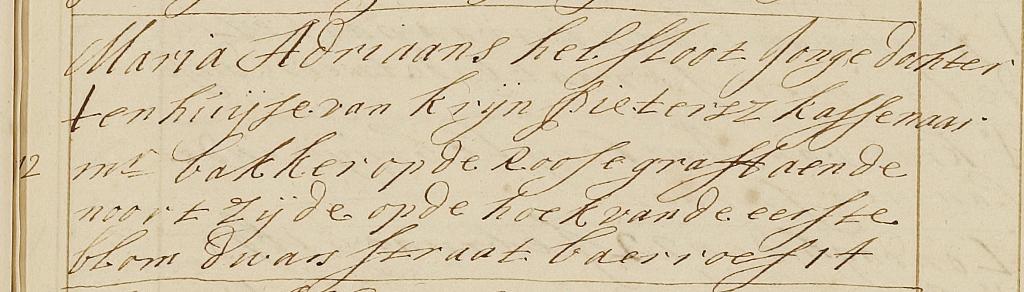 Maria Adriaans helsloot Jonge dochter
ten huijse van krijn pietersz kassenaar
12 mr bakker op de Roose graft aen de
noort zijde op de hoek van de eerste
blom dwars straat baer roef 14